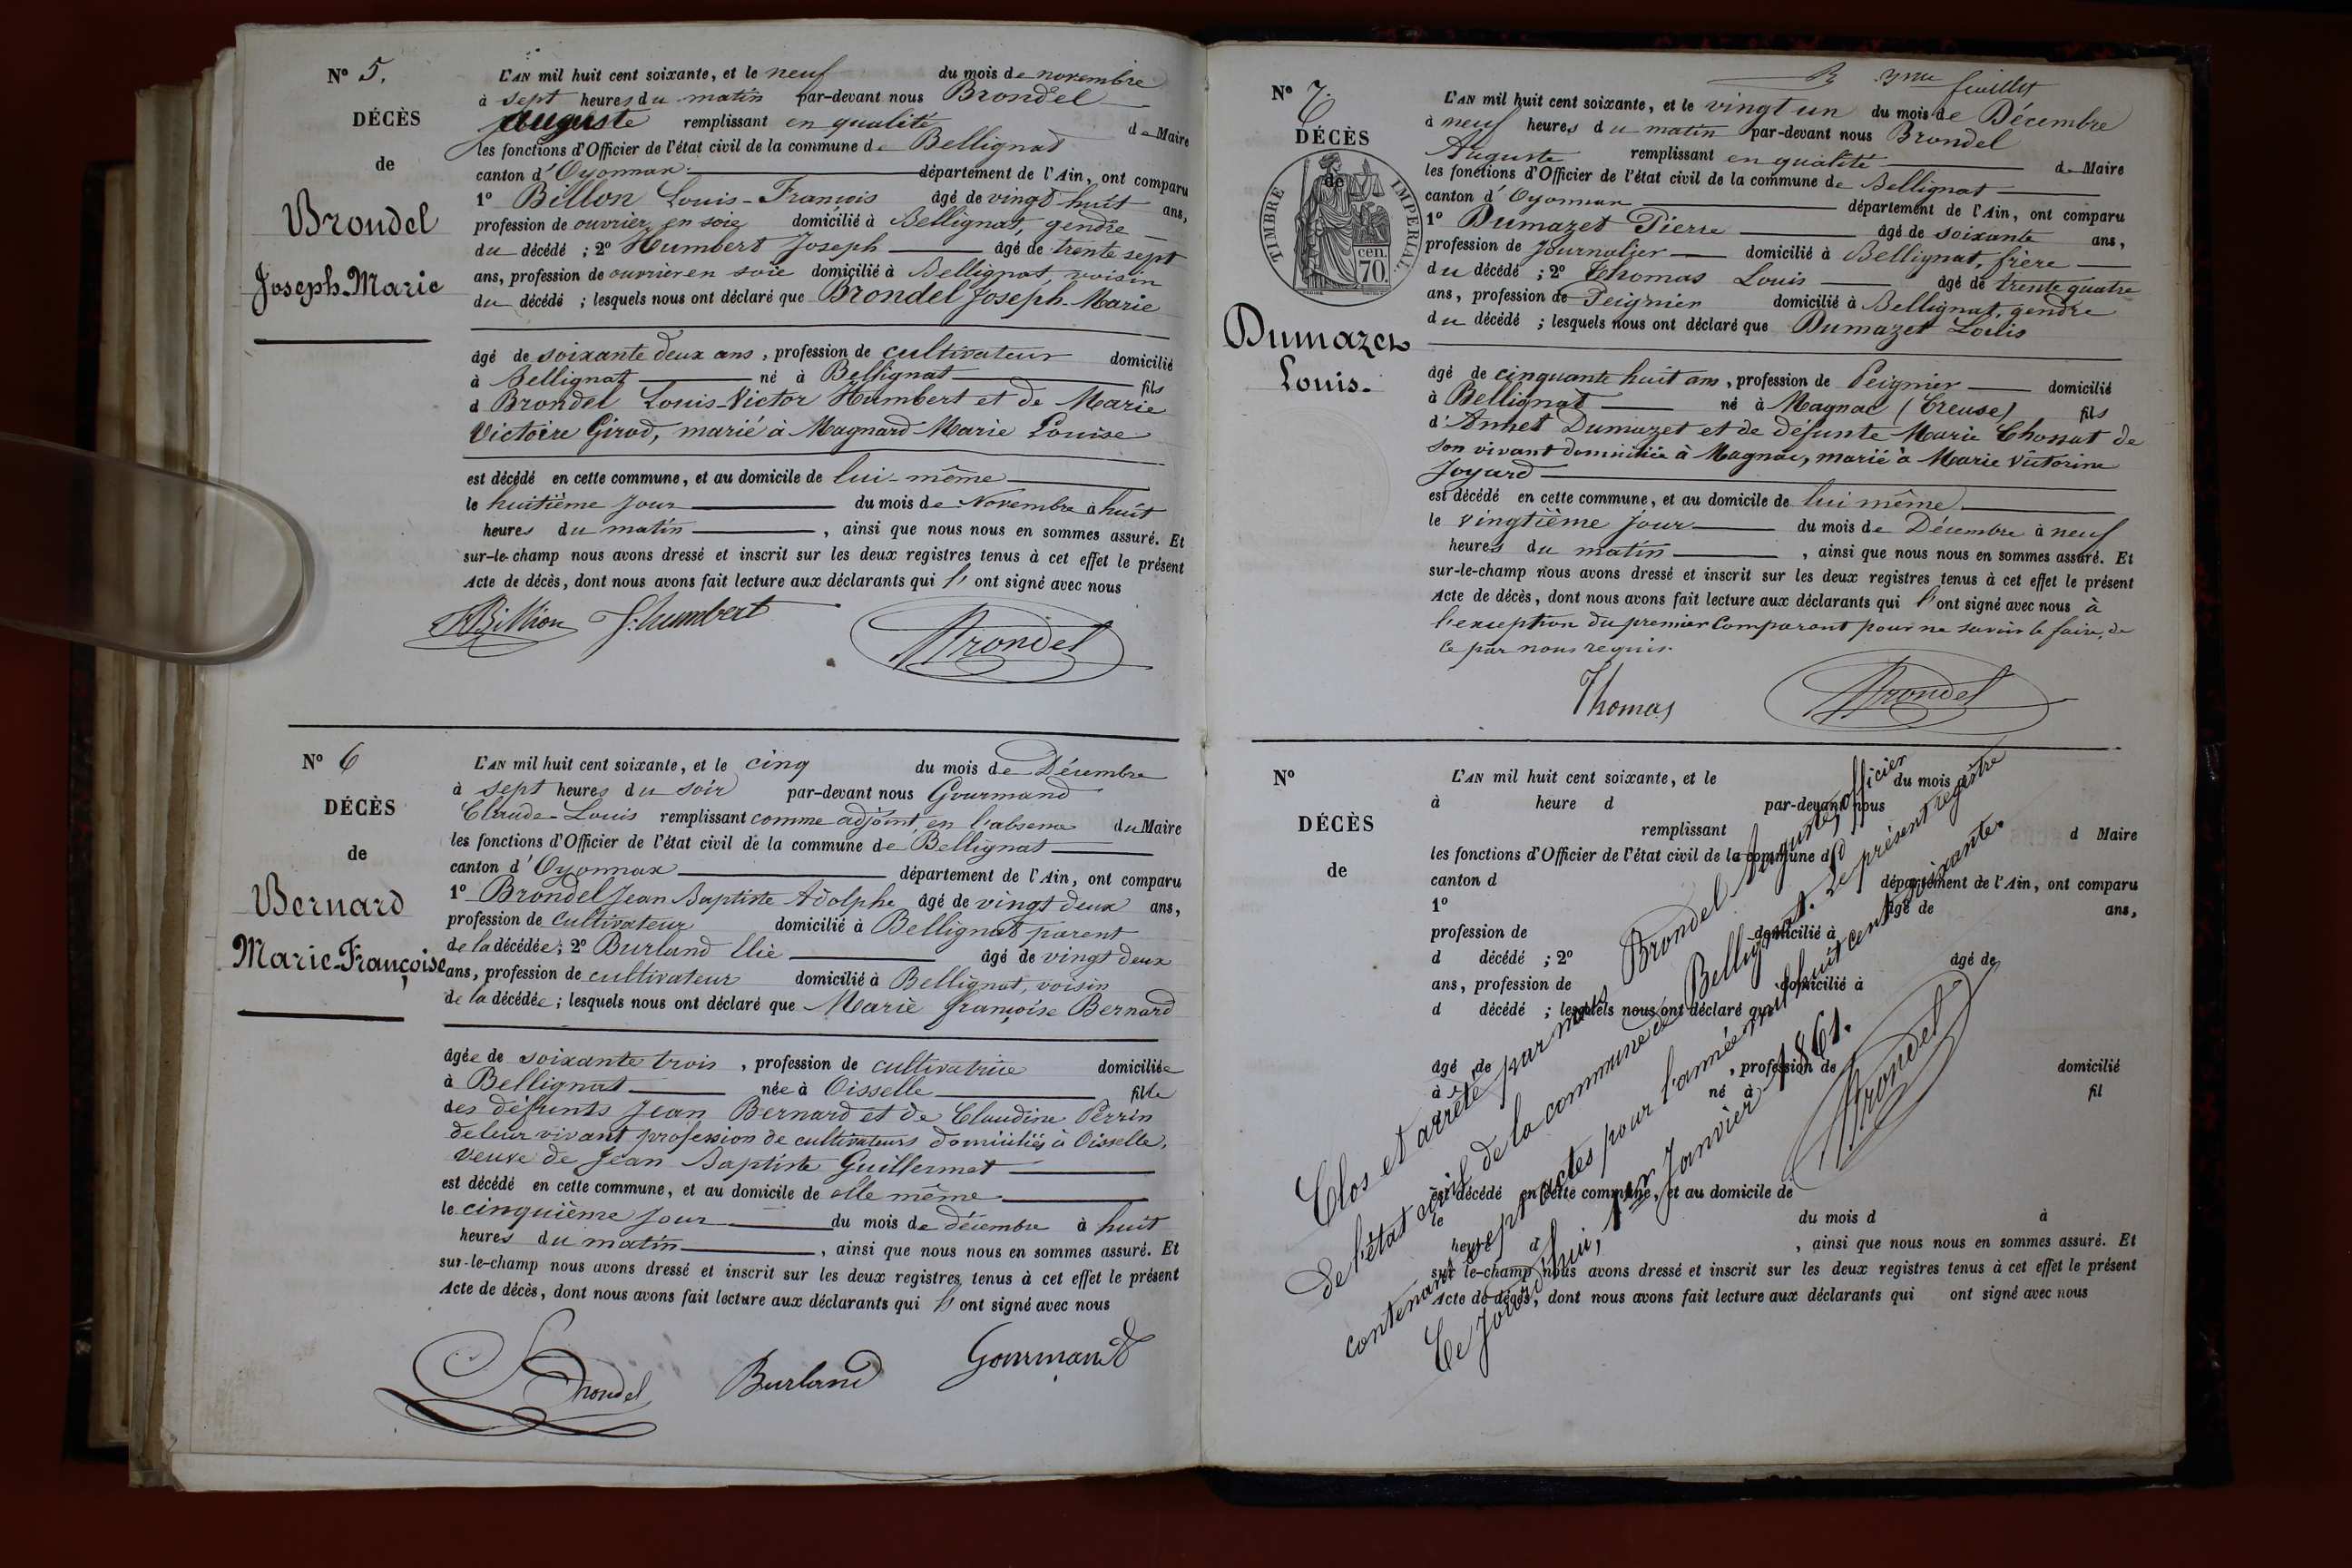 N° 5.
DÉCÈS
de
Brondel
Joseph-Marie
L'AN mil huit cent soixante, et le neuf du mois de novembre
à sept heures du matin par-devant nous Brondel
Auguste remplissant en qualité de Maire
les fonctions d'Officier de l'état civil de la commune de Bellignat
canton d'Oyonnax département de l'Ain, ont comparu
1° Billon Louis-François âgé de vingt huit ans,
profession de ouvrier en soie domicilié à Bellignat, gendre
du décédé ; 2° Humbert Joseph âgé de trente sept
ans, profession de ouvrier en soie domicilié à Bellignat, voisin
du décédé ; lesquels nous ont déclaré que Brondel Joseph-Marie
âgé de soixante deux ans, profession de cultivateur domicilié
à Bellignat né à Bellignat fils
d Brondel Louis-Victor Humbert et de Marie
Victoire Girod, marié à Magnard Marie Louise
est décédé en cette commune, et au domicile de lui-même
le huitième jour du mois de Novembre à huit
heures du matin, ainsi que nous nous en sommes assuré. Et
sur-le-champ nous avons dressé et inscrit sur les deux registres tenus à cet effet le présent
Acte de décès, dont nous avons fait lecture aux déclarants qui l'ont signé avec nous
Billion J. humbert Brondel
N° 6
DÉCÈS
de
Bernard
Marie-Françoise
L'AN mil huit cent soixante, et le cinq du mois de Décembre
à sept heures du soir par-devant nous Gourmand
Claude-Louis remplissant comme adjoint, en l'absence du Maire
les fonctions d'Officier de l'état civil de la commune de Bellignat
canton d'Oyonnax département de l'Ain, ont comparu
1° Brondel Jean Baptiste Adolphe âgé de vingt deux ans,
profession de cultivateur domicilié à Bellignat parent
de la décédée ; 2° Burland Elie âgé de vingt deux
ans, profession de cultivateur domicilié à Bellignat, voisin
de la décédée ; lesquels nous ont déclaré que Marie françoise Bernard
âgée de soixante trois, profession de cultivatrice domiciliée
à Bellignat née à Oisselle fille
des défunts Jean Bernard et de Claudine Perrin
de leur vivant profession de cultivateurs domiciliés à Oisselle,
veuve de Jean Baptiste Guillermet
est décédé en cette commune, et au domicile de elle même
le cinquième jour du mois de décembre à huit
heures du matin, ainsi que nous nous en sommes assuré. Et
sur-le-champ nous avons dressé et inscrit sur les deux registres tenus à cet effet le présent
Acte de décès, dont nous avons fait lecture aux déclarants qui l'ont signé avec nous
Brondel Burland Gourmand
3me feuillet
N° 7.
DÉCÈS
de
TIMBRE IMPERIAL
70 cen.
Dumazet
Louis.
L'AN mil huit cent soixante, et le vingt un du mois de Décembre
à neuf heures du matin par-devant nous Brondel
Auguste remplissant en qualité de Maire
les fonctions d'Officier de l'état civil de la commune de Bellignat
canton d'Oyonnax département de l'Ain, ont comparu
1° Dumazet Pierre âgé de soixante ans,
profession de Journalier domicilié à Bellignat, frère
du décédé ; 2° Thomas Louis âgé de trente quatre
ans, profession de Peignier domicilié à Bellignat, gendre
du décédé ; lesquels nous ont déclaré que Dumazet Louis
âgé de cinquante huit ans, profession de Peignier domicilié
à Bellignat né à Magnac (Creuse) fils
d'Annet Dumazet et de défunte Marie Chossat de
son vivant domiciliée à Magnac, marié à Marie Victorine
Joyard
est décédé en cette commune, et au domicile de lui même
le vingtième jour du mois de Décembre à neuf
heures du matin, ainsi que nous nous en sommes assuré. Et
sur-le-champ nous avons dressé et inscrit sur les deux registres tenus à cet effet le présent
Acte de décès, dont nous avons fait lecture aux déclarants qui l'ont signé avec nous à
l'exception du premier comparant pour ne savoir le faire, de
ce par nous requis.
Thomas Brondel
N°
DÉCÈS
de
L'AN mil huit cent soixante, et le du mois d
à heure d par-devant nous
remplissant d Maire
les fonctions d'Officier de l'état civil de la commune d
canton d département de l'Ain, ont comparu
1° âgé de ans,
profession de domicilié à
d décédé ; 2° âgé de
ans, profession de domicilié à
d décédé ; lesquels nous ont déclaré que
âgé de , profession de domicilié
à né à fil
est décédé en cette commune, et au domicile de
le du mois d à
heure d , ainsi que nous nous en sommes assuré. Et
sur le-champ nous avons dressé et inscrit sur les deux registres tenus à cet effet le présent
Acte de décès, dont nous avons fait lecture aux déclarants qui ont signé avec nous
Clos et arrêté par nous Brondel Auguste, officier
de l'état civil de la commune de Bellignat. Le présent registre
contenant sept actes pour l'année mil huit cent soixante.
Ce Jourd'hui, 1er Janvier 1861.
Brondel